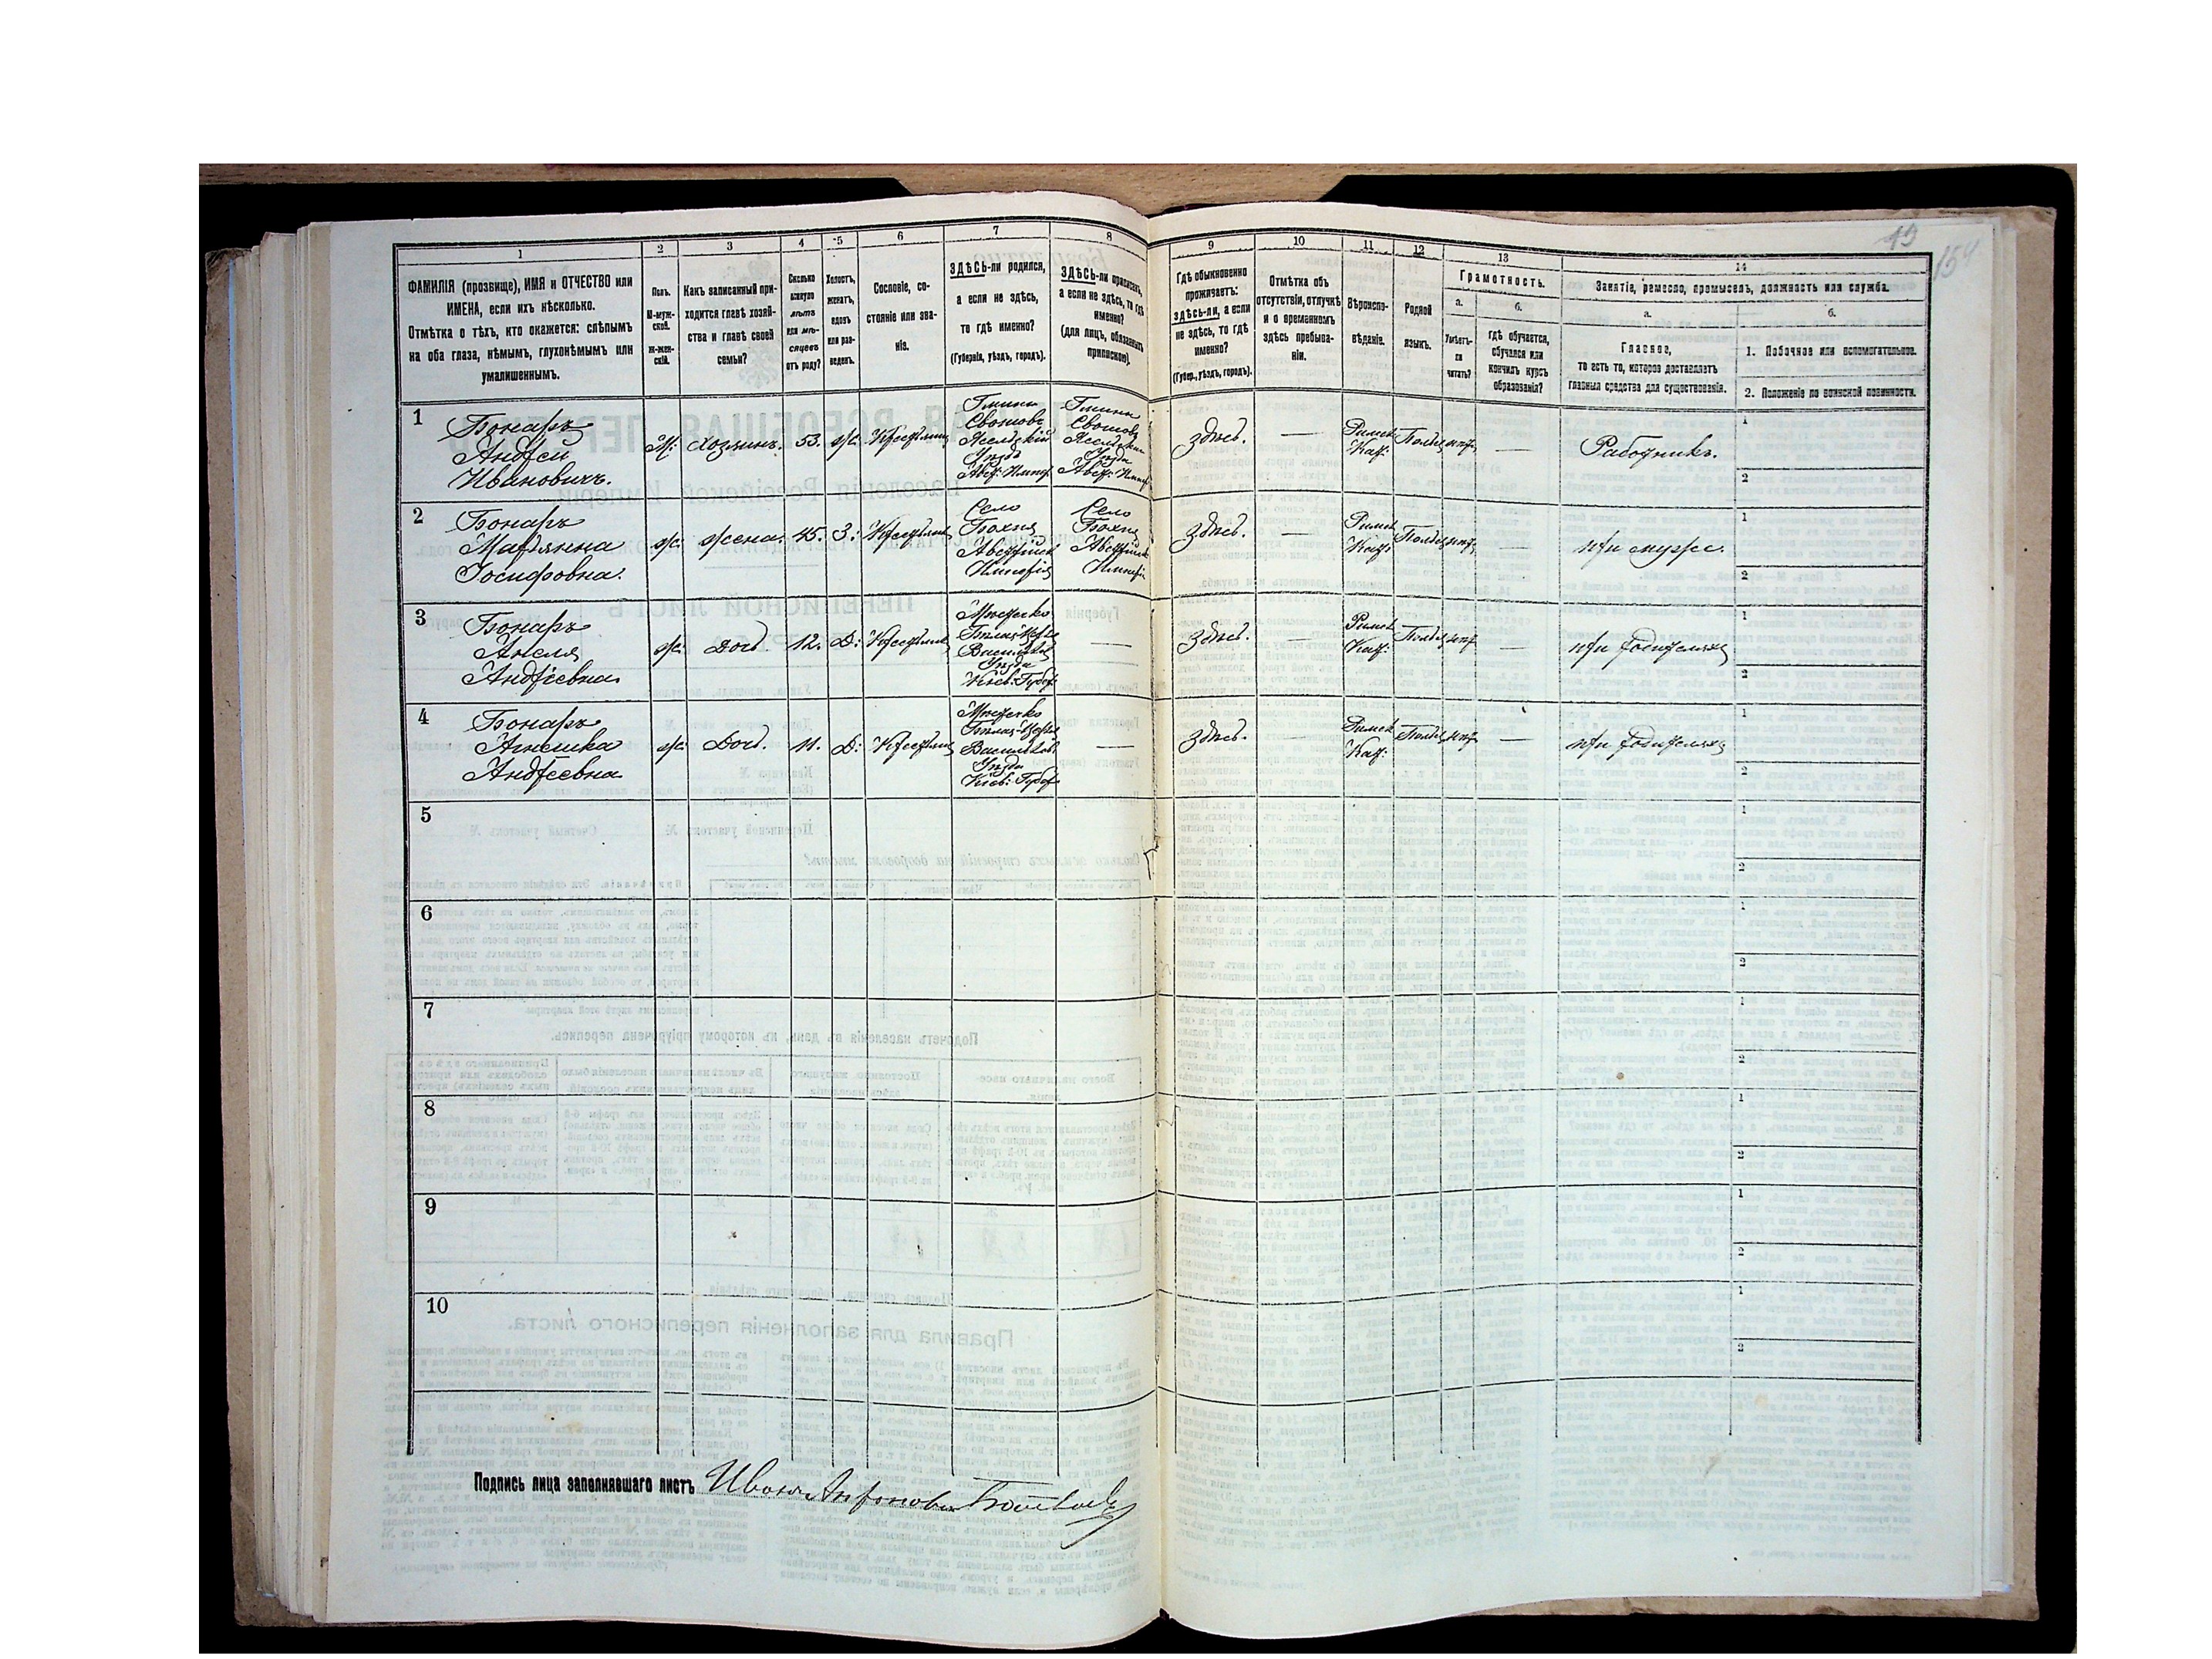 19
154
1
2
3
4
5
6
7
8
9
10
11
12
13
14
ФАМИЛІЯ (прозвище), ИМЯ и ОТЧЕСТВО или
ИМЕНА, если ихъ нѣсколько.
Отмѣтка о тѣхъ, кто окажется: слѣпымъ
на оба глаза, нѣмымъ, глухонѣмымъ или
умалишеннымъ.
Полъ.
М-муж-
ской.
ж-жен-
скій.
Какъ записанный при-
ходится главѣ хозяй-
ства и главѣ своей
семьи?
Сколько
минуло
лѣтъ
или мѣ-
сяцевъ
отъ роду?
Холостъ,
женатъ,
вдовъ
или раз-
веденъ.
Сословіе, со-
стояніе или зва-
ніе.
ЗДѢСЬ-ли родился,
а если не здѣсь,
то гдѣ именно?
(Губернія, уѣздъ, городъ).
ЗДѢСЬ-ли приписанъ,
а если не здѣсь, то гдѣ
именно?
(для лицъ, обязанныхъ
припискою).
Гдѣ обыкновенно
проживаетъ:
здѣсь-ли, а если
не здѣсь, то гдѣ
именно?
(Губер., уѣздъ, городъ).
Отмѣтка объ
отсутствіи, отлучкѣ
и о временномъ
здѣсь пребыва-
ніи.
Вѣроиспо-
вѣданіе.
Родной
языкъ.
Грамотность.
а.
Умѣетъ-
ли
читать?
б.
гдѣ обучается,
обучался или
кончилъ курсъ
образованія?
Занятіе, ремесло, промыселъ, должность или служба.
а.
Главное,
то есть то, которое доставляетъ
главныя средства для существованія.
б.
1. Побочное или вспомогательное.
2. Положеніе по воинской повинности.
1
Бонаръ
Андрей
Ивановичъ.
М:
Хозяинъ.
53.
ж.
Крестьянинъ
Гмина
Уѣзда
Авст: Импер.
Гмина
Уѣзда
Авст: Импер
Здѣсь.
—
Римск
Кат:
Польск
нѣт.
—
Работникъ.
1
2
2
Бонаръ
Марьянна
Іосифовна.
ж:
жена.
45.
З:
Крестьянка
Село
Бохня
Австрійск
Имперія
Село
Бохня
Австрійск
Имперія
Здѣсь.
—
Римск
Кат:
Польск
нѣт.
—
при мужѣ.
1
2
3
Бонаръ
Анеля
Андреевна.
ж:
Дочь.
12.
Д:
Крестьянка
Мѣстечко
Бѣлая-Церк
Васильков
Уѣзда
Кіев: Губер
—
Здѣсь.
—
Римск
Кат:
Польск
нѣт.
—
при родителяхъ
1
2
4
Бонаръ
Агнешка
Андреевна.
ж:
Дочь.
11.
Д:
Крестьянка
Мѣстечко
Бѣлая-Церк
Васильков
Уѣзда
Кіев: Губер
—
Здѣсь.
—
Римск
Кат:
Польск
нѣт.
—
при родителяхъ
1
2
5
1
2
6
1
2
7
1
2
8
1
2
9
1
2
10
1
2
Подпись лица заполнявшаго листъ Иванъ Антоновъ